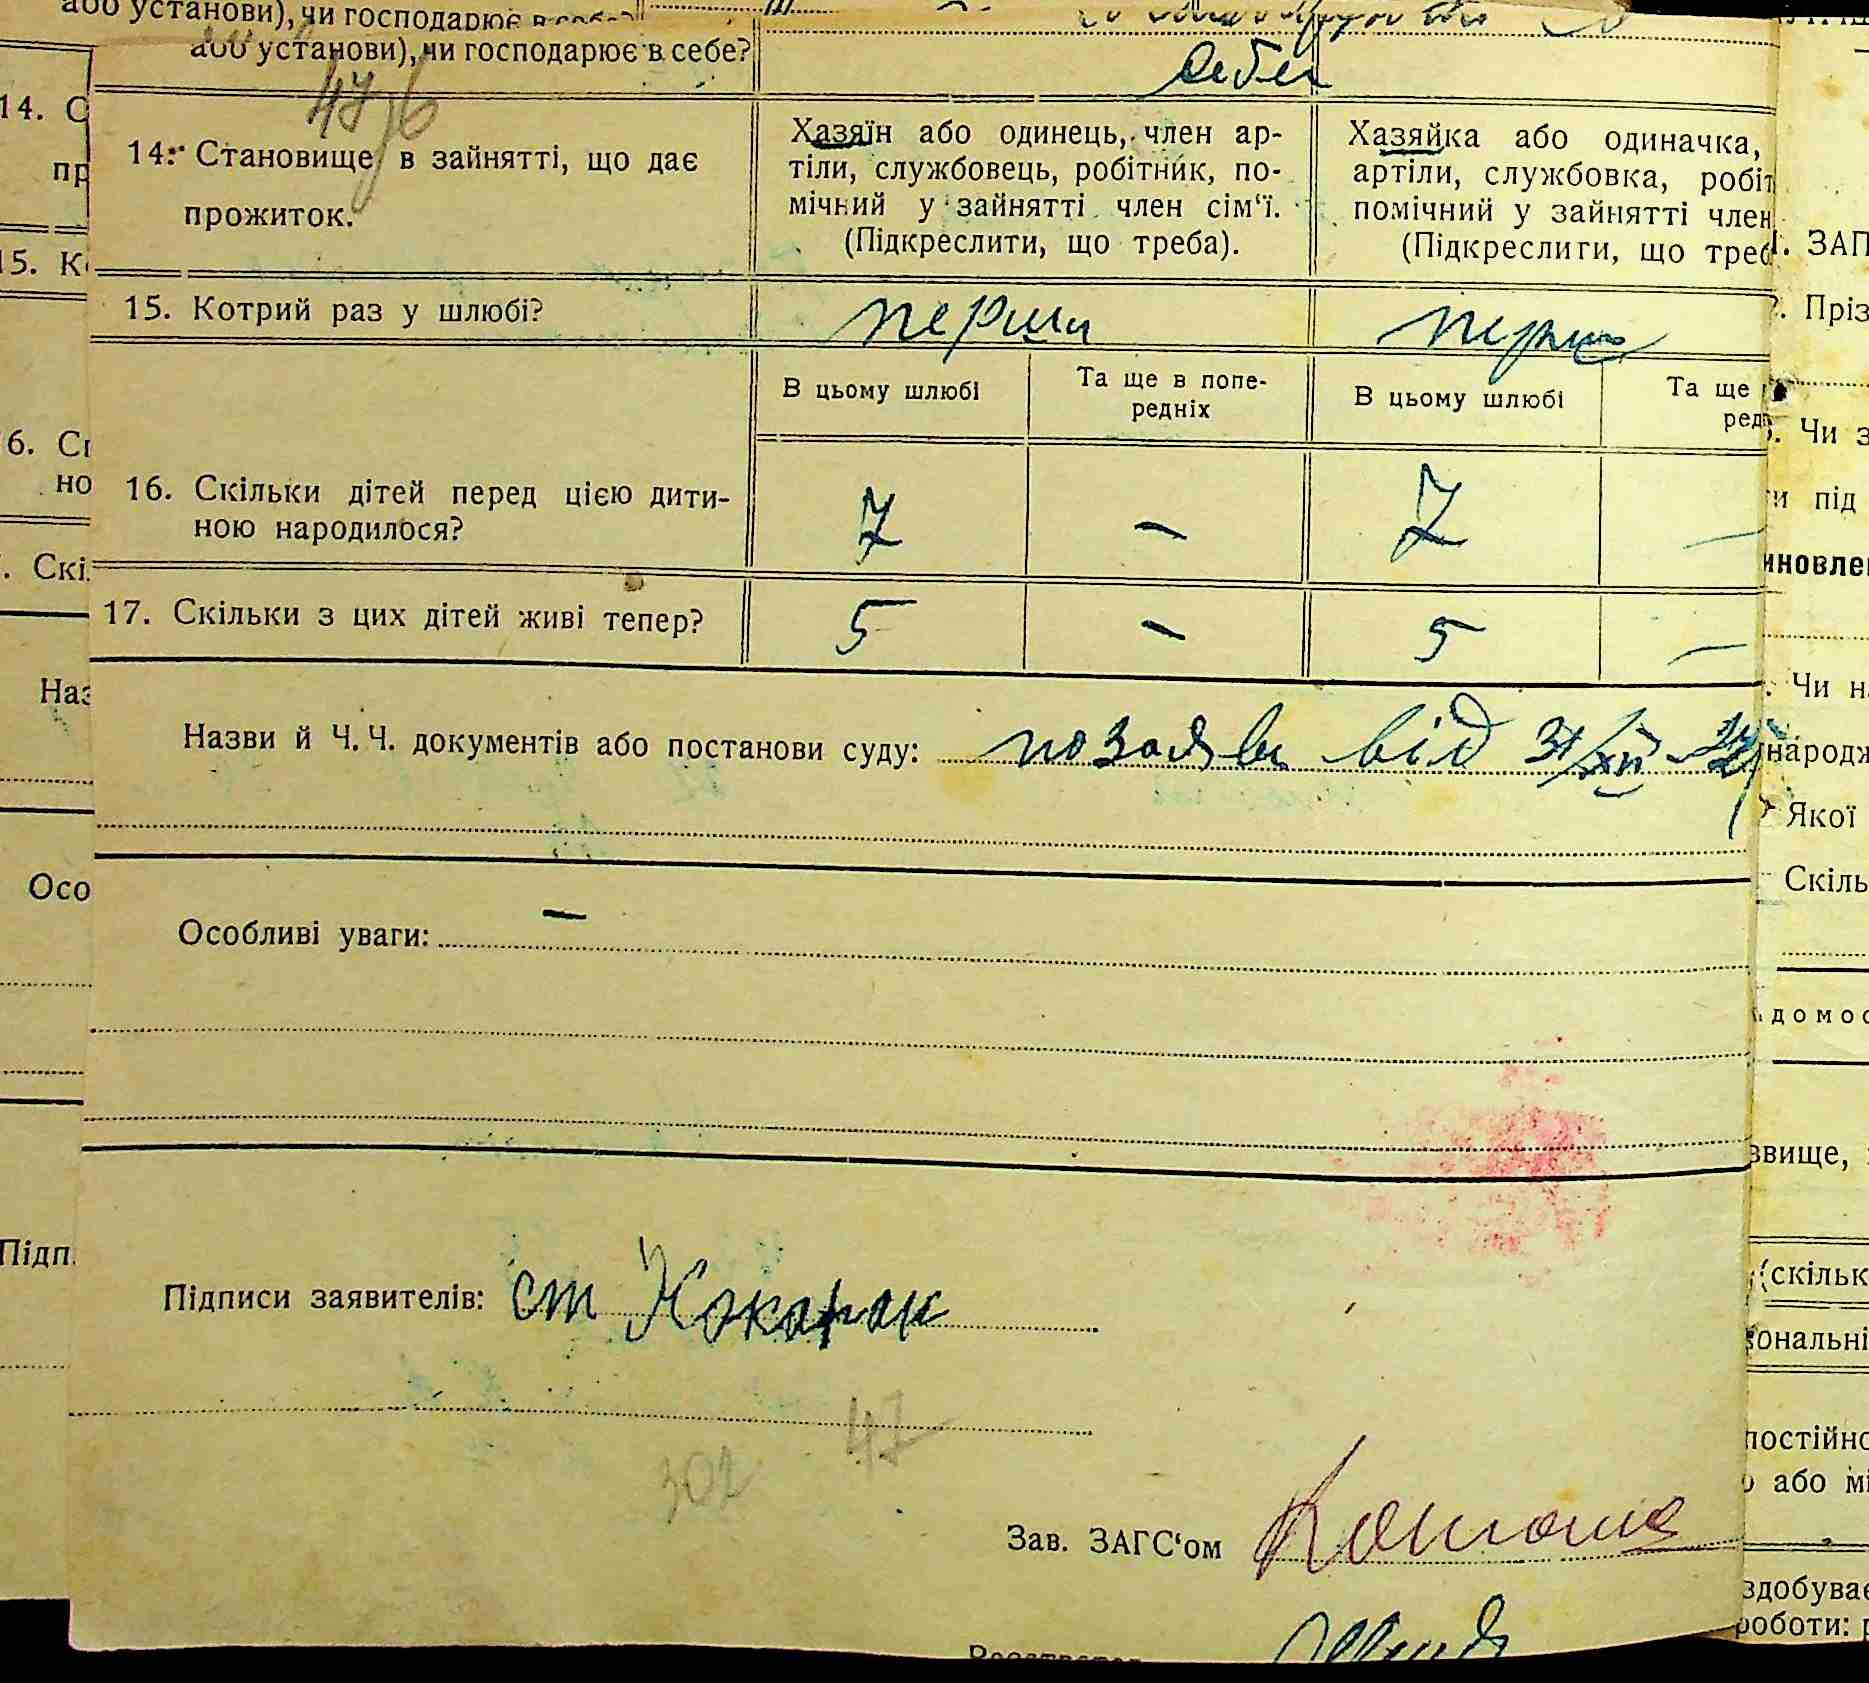 або установи), чи господарює в себе?
або установи), чи господарює в себе?
себе
47
14. Становище в зайнятті, що дає
прожиток.
Хазяїн або одинець, член ар-
тіли, службовець, робітник, по-
мічний у зайнятті член сім‘ї.
(Підкреслити, що треба).
Хазяйка або одиначка,
артіли, службовка, робіт
помічний у зайнятті член
(Підкреслити, що треб
15. Котрий раз у шлюбі?
перши
перш
В цьому шлюбі
Та ще в попе-
редніх
В цьому шлюбі
Та ще
ред
16. Скільки дітей перед цією дити-
ною народилося?
7 – 7 –
17. Скільки з цих дітей живі тепер?
5 – 5 –
Назви й Ч.Ч. документів або постанови суду: по заяві від 31/XII
Особливі уваги: –
Підписи заявителів: ст
47
302
Зав. ЗАГС‘ом
14. С
пр
15. К
6. Сі
но
. Скі
Наз
Осо
Підп.
. ЗАП
. Пріз
. Чи з
и під
иновле
. Чи н
народж
Якої
Скіль
домос
звище,
(скільк
ональні
постійно
або мі
здобуває
роботи: р